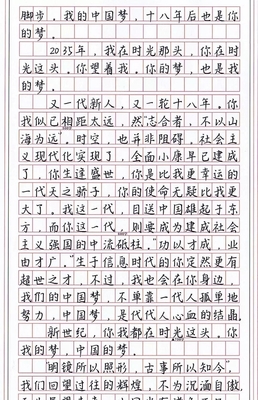 脚步。我的中国梦,十八年后也是你
的梦。
2035年,我在时光那头,你在时
光这头。你望着我。你的梦,也是我
的梦。
又一代新人,又一轮十八年。你
我似已相距太远,然“志合者,不以山
海为远”。时空,也并非阻碍。社会主
义现代化实现了,全面小康早已建成
了,你生逢盛世,你是比我更幸运的
一代天之骄子,你的使命无疑比我更
大了。我这一代,目送中国雄起于东
方,而你这一代,则要成为建成社会
主义强国的中流砥柱。“功以才成,业
由才广。”生于信息时代的你定然更有
超世之才,不过,我也会在你身边,
我们的中国梦,不单靠一代人孤单地
努力,中国梦,是代代人心血的结晶。
新世纪,你我都在时光这头。你
我的梦,中国的梦。
“明镜所以照形,古事所以知今”,
我们回望过往的辉煌,不为沉湎自傲,